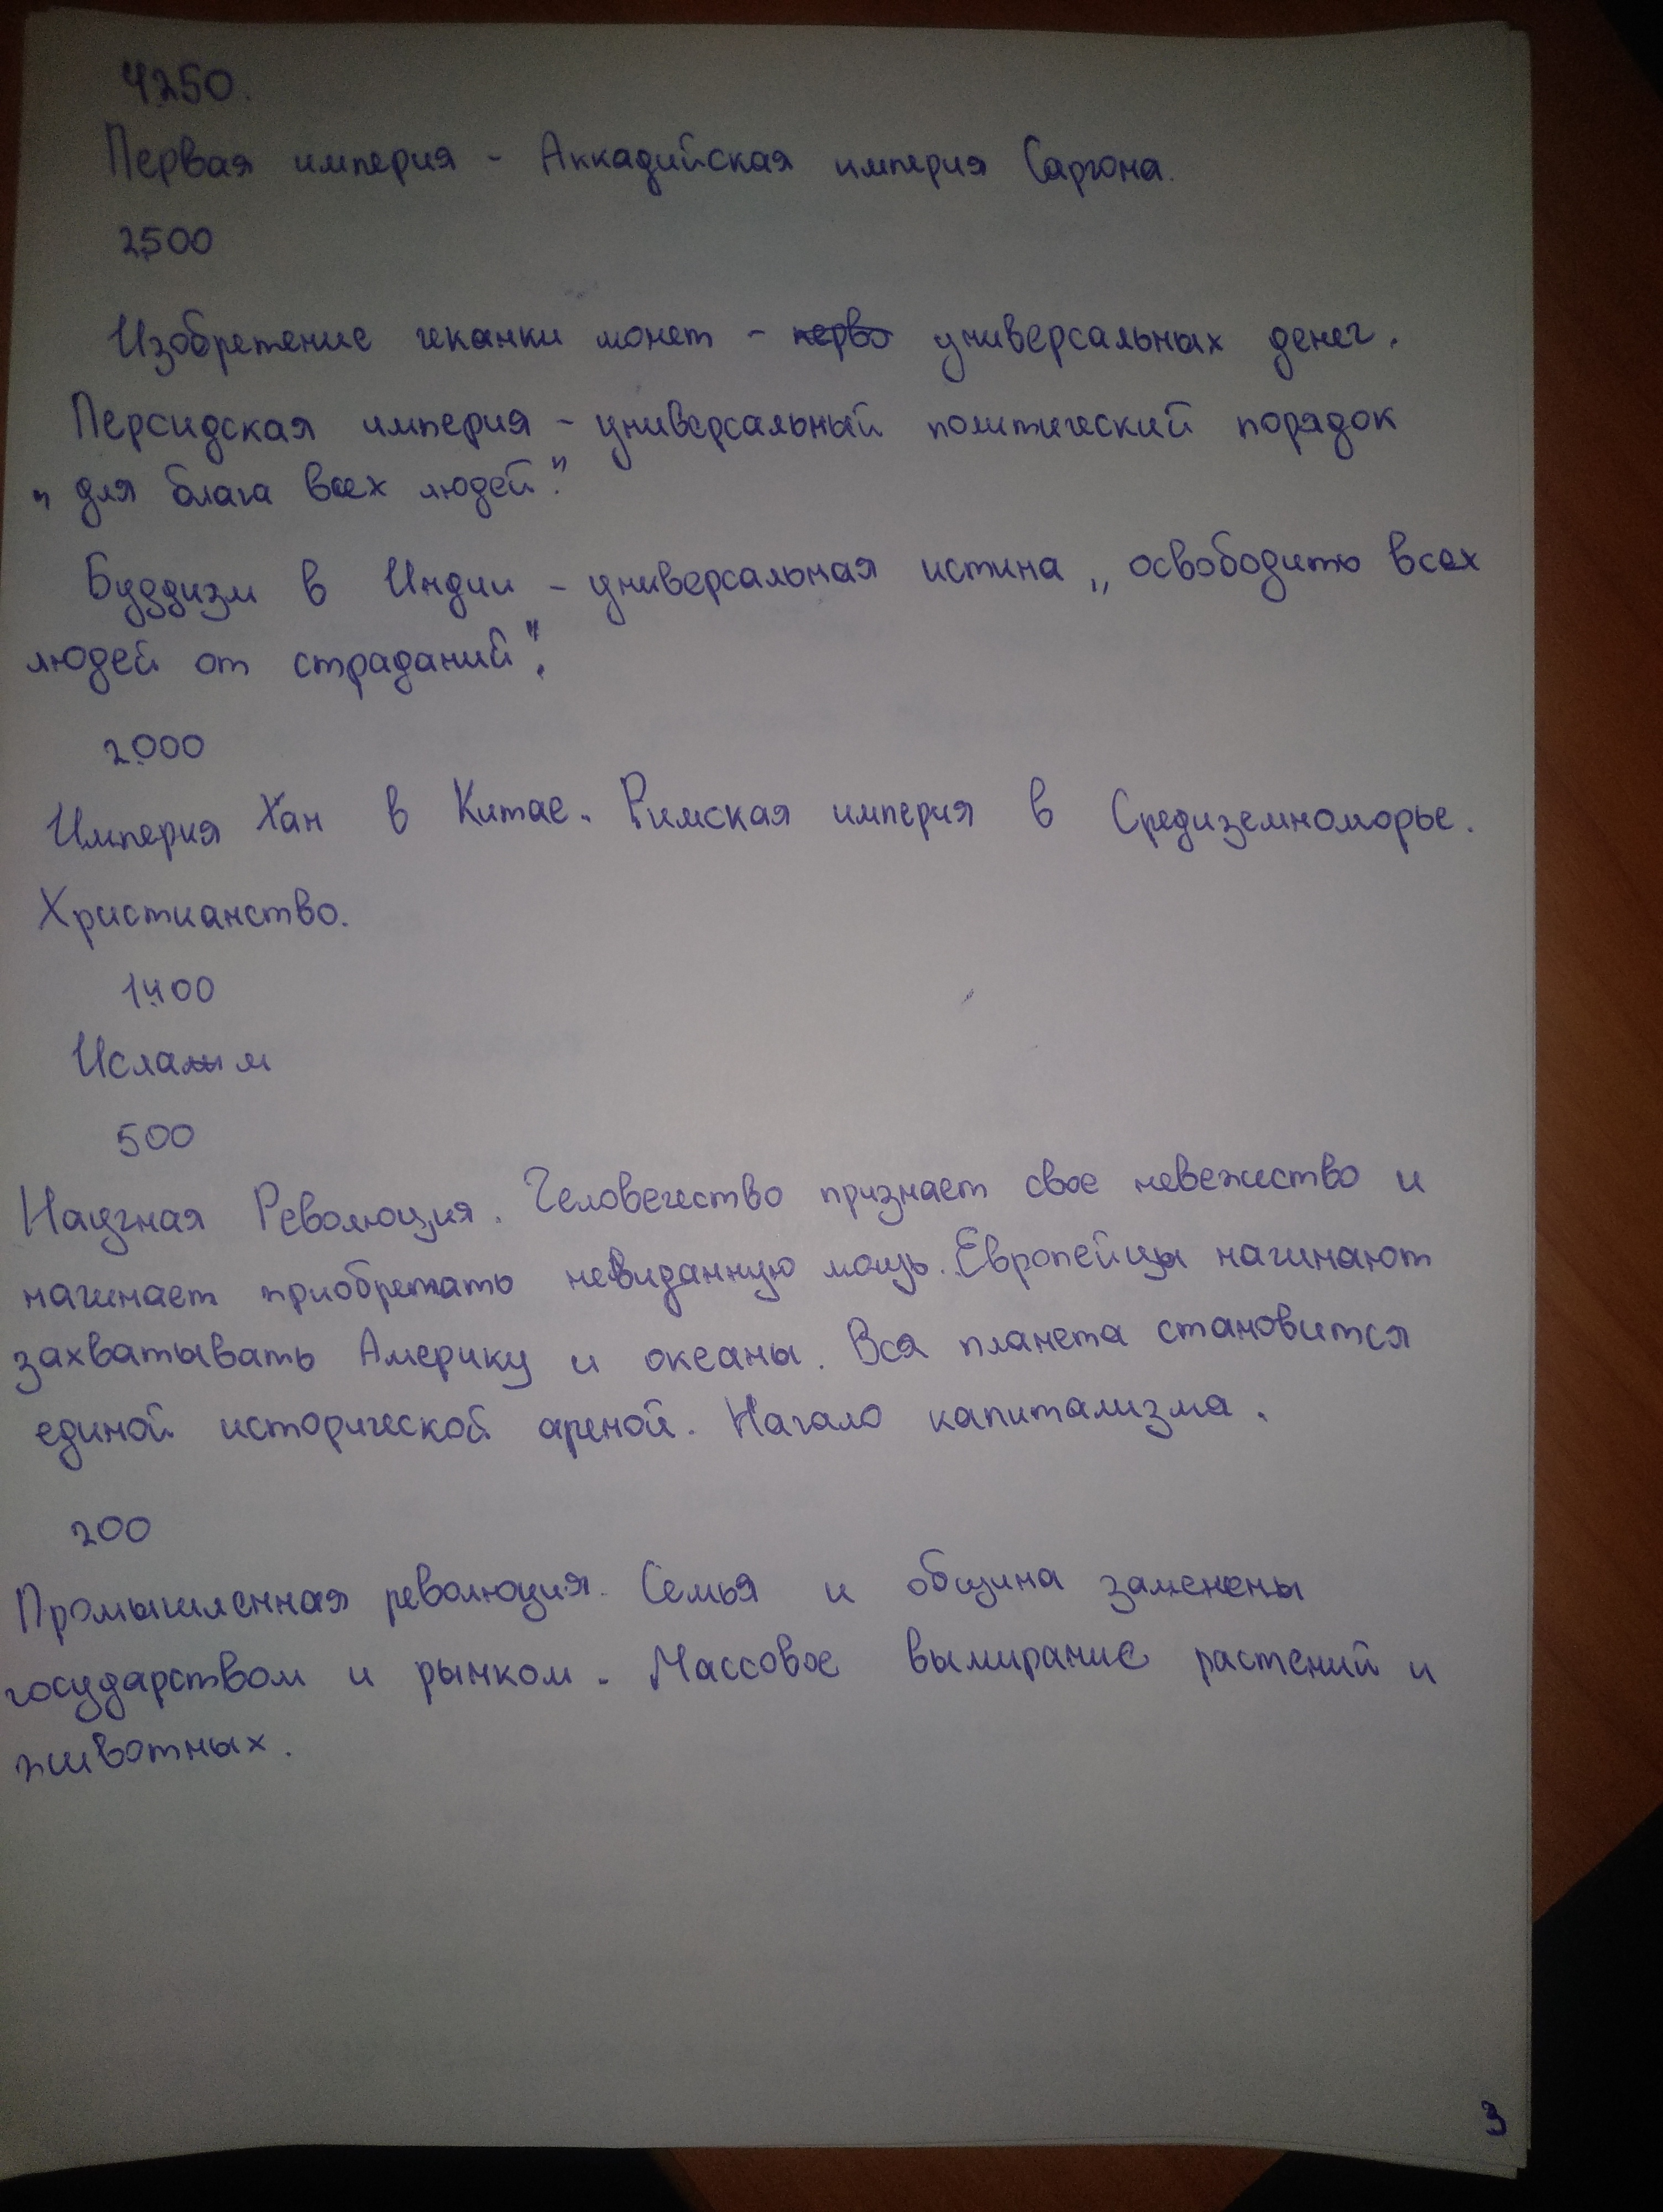 4.250.
Первая империя - Аккадийская империя Саргона.
2.500
Изобретение чеканки монет - перво универсальных денег.
Персидская империя - универсальный политический порядок
„для блага всех людей".
Буддизм в Индии - универсальная истина „освободить всех
людей от страданий".
2.000
Империя Хан в Китае. Римская империя в Средиземноморье.
Христианство.
1.400
Ислам
500
Научная Революция. Человечество признает свое невежество и
начинает приобретать невиданную мощь. Европейцы начинают
захватывать Америку и океаны. Вся планета становится
единой исторической ареной. Начало капитализма.
200
Промышленная революция. Семья и община заменены
государством и рынком. Массовое вымирание растений и
животных.
3